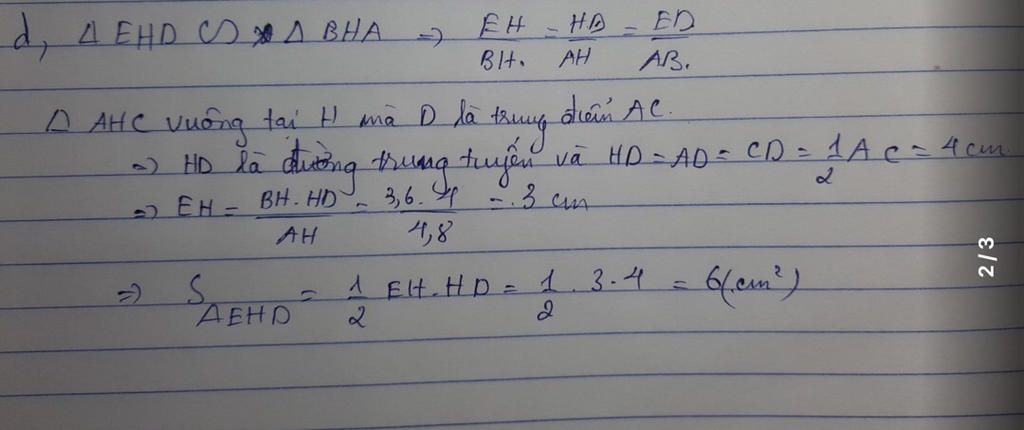 d, Δ EHD ∽ Δ BHA ⇒ EH/BH. = HD/AH = ED/AB.
Δ AHC vuông tại H mà D là trung điểm AC.
⇒ HD là đường trung tuyến và HD = AD = CD = 1/2 AC = 4 cm
⇒ EH = BH.HD/AH = 3,6.4/4,8 = 3 cm
⇒ S ΔEHD = 1/2 EH.HD = 1/2 . 3.4 = 6(cm²)
2/3